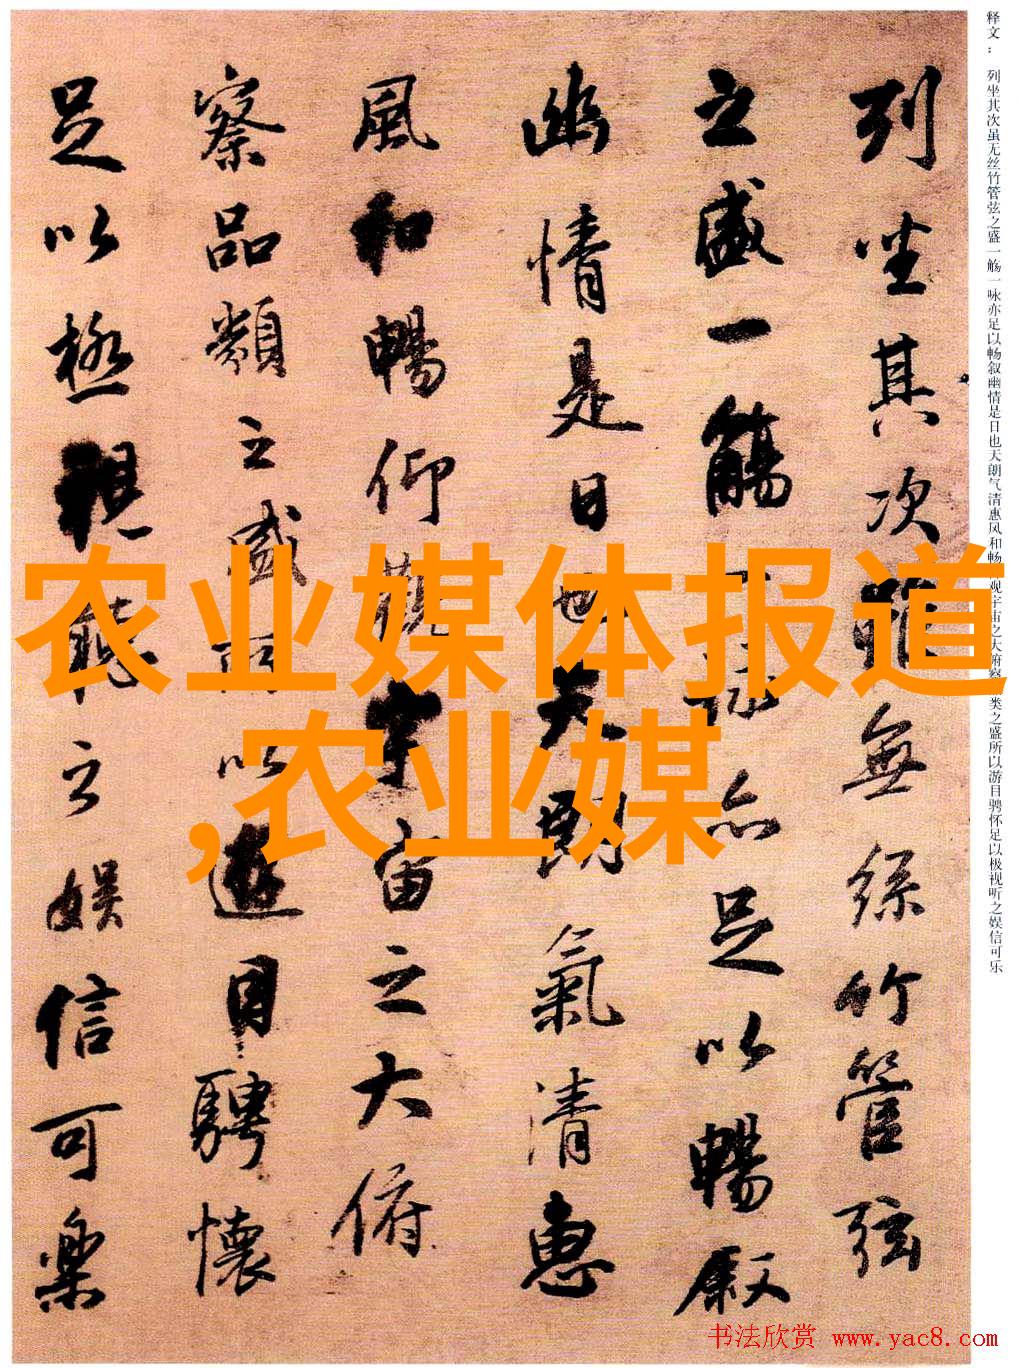 释文：列坐其次虽无丝竹管弦之盛一觞一咏亦足以畅叙幽情是日也天朗气清惠风和畅观宇宙之大府察类之盛所以游目骋怀足以极视听之娱信可乐
列坐其次雖無絲竹管弦
之盛一觴一詠亦足以暢叙
幽情是日也天朗氣清惠
風和暢仰觀宇宙之大俯
察品類之盛所以遊目騁懷
足以極視聽之娛信可樂
农业媒体报道
,农业媒
书法欣赏 www.yac8.com